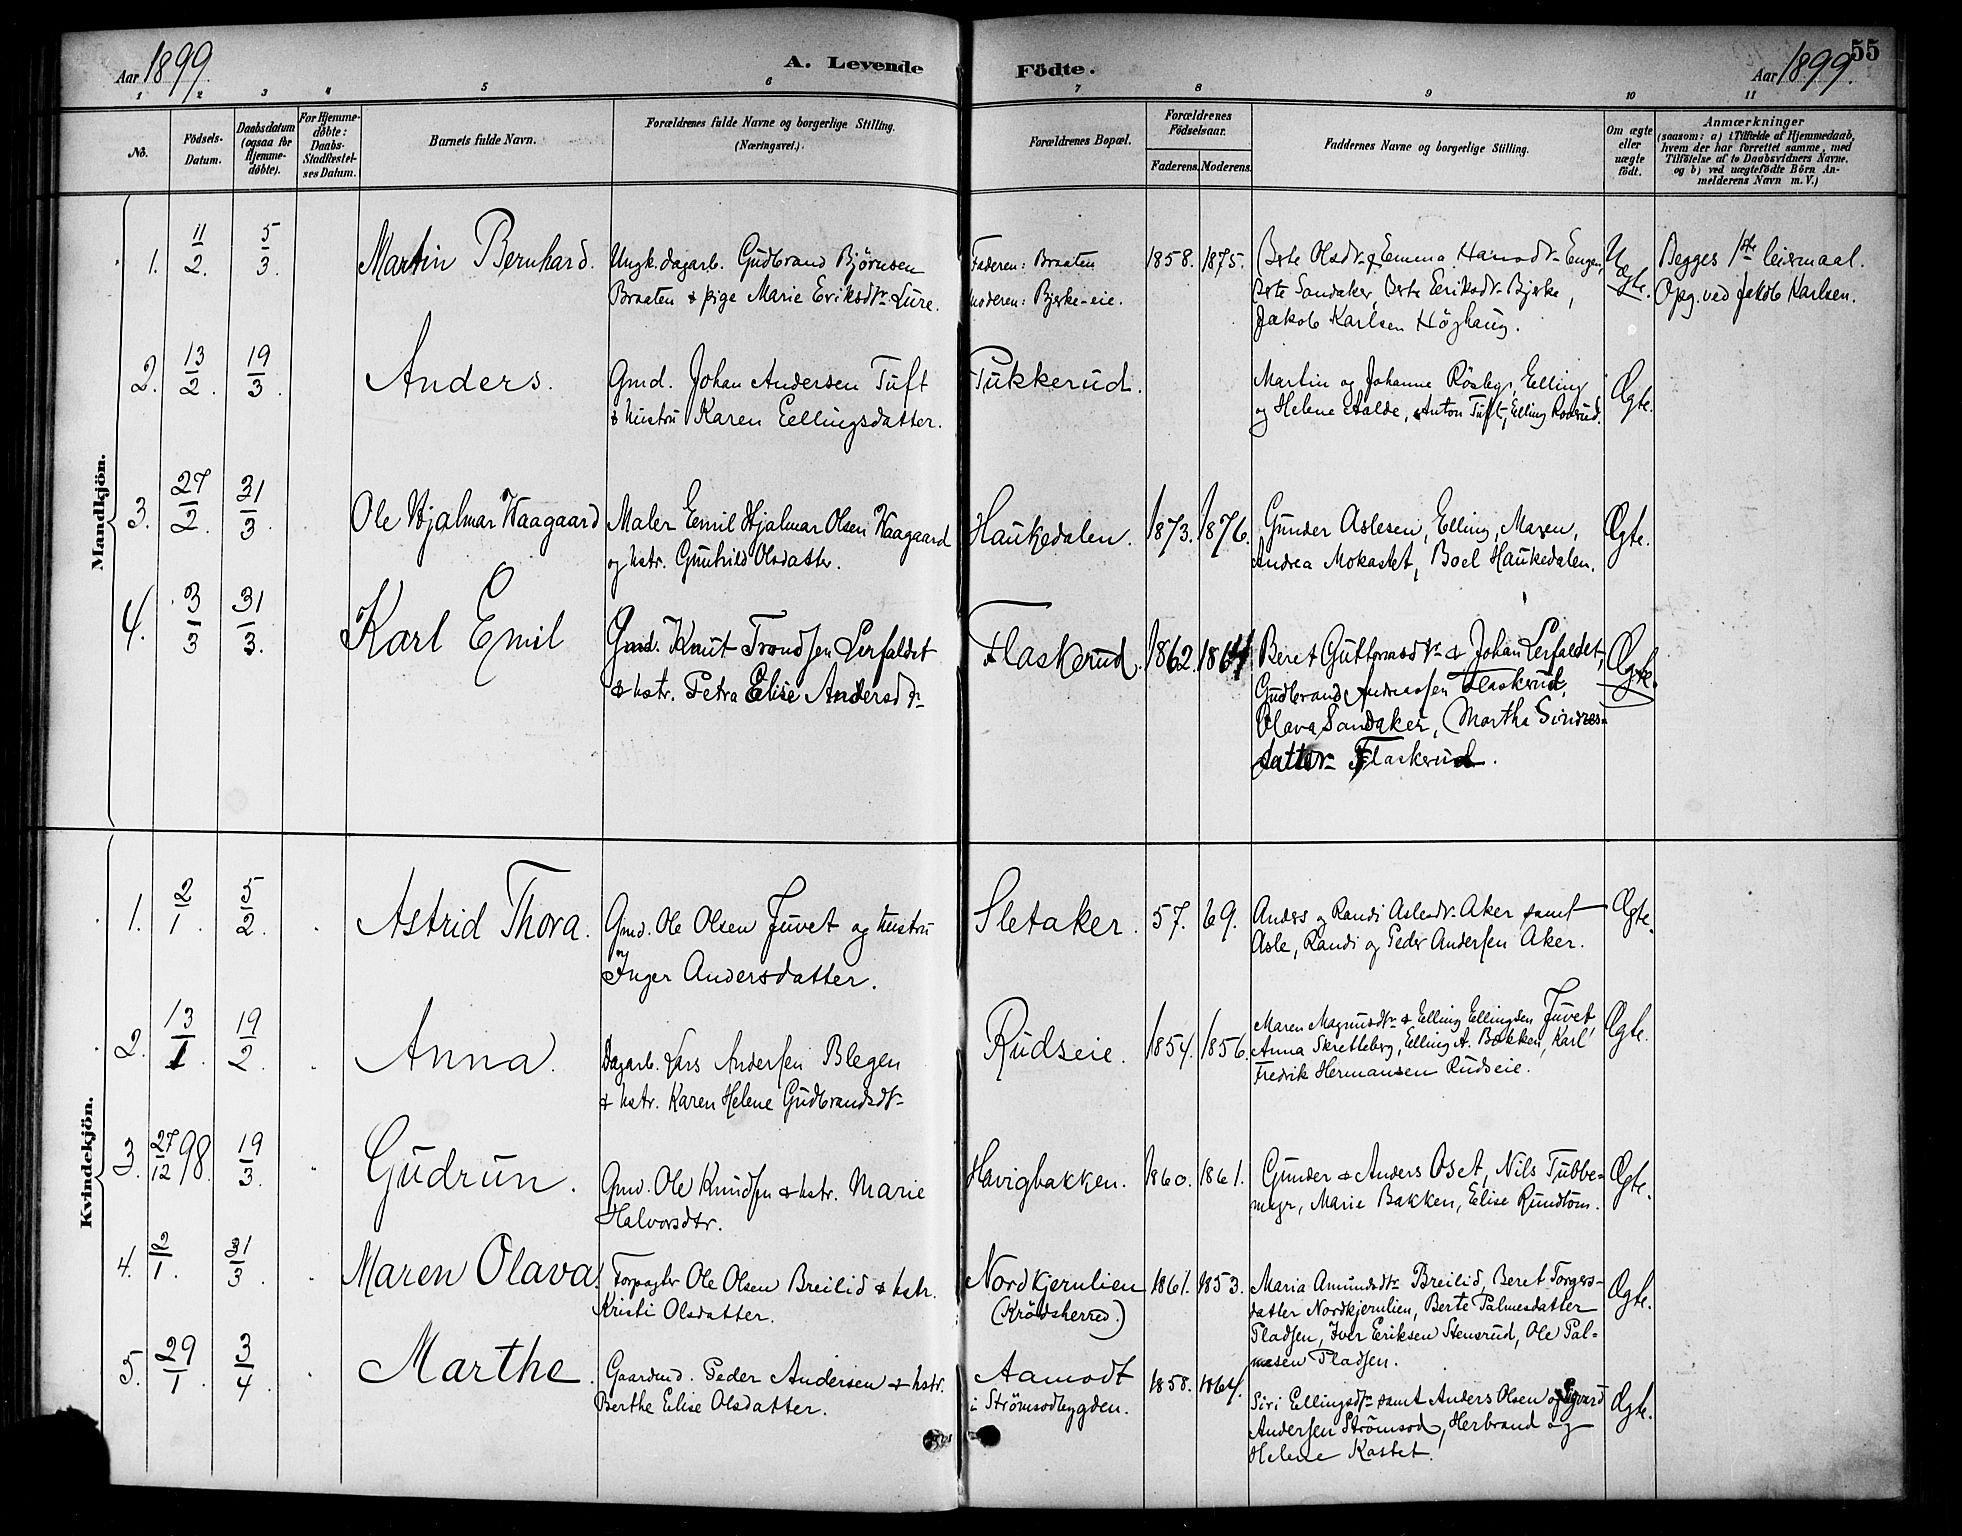 Aar 1899. A. Levende Födte. Aar 1899. 55
1 2 3 4 5 6 7 8 9 10 11
No. Födsels-Datum. Daabsdatum (ogsaa for Hjemme-döbte). For Hjemme-döbte: Daabs-Stadfæstel-ses Datum. Barnets fulde Navn. Forældrenes fulde Navne og borgerlige Stilling. (Næringsvei). Forældrenes Bopæl. Forældrenes Födselsaar. Faderens. Moderens. Faddernes Navne og borgerlige Stilling. Om ægte eller uægte födt. Anmærkninger (saasom: a) i Tilfælde af Hjemmedaab, hvem der har forrettet samme, med Tilföielse af to Daabsvidners Navne, og b) ved uægtefödte Börn An-melderens Navn m. V.)
Mandkjön.
1. 11/2. 5/3. Martin Bernhard. Ungk. dagarb. Gudbrand Björnsen
Braaten & pige Marie Eriksdtr Lure.
Faderen: Braaten
Moderen: Bjerke-eie.
1858. 1875.
Berte Olsdtr & Emma Hansdtr Engen,
Berte Sandaker, Berte Eriksdtr Bjerke,
Jakob Karlsen Höghaug.
Uægte.
Begges 1ste leiermaal.
Opg. ved Jakob Karlsen.
2. 13/2. 19/3. Anders. Gmd. Johan Andersen Tuft
& hustru Karen Ellingsdatter.
Tukkerud.
Martin og Johanne Rösleg, Elling
og Helene Aalde, Anton Tuft, Elling
Ægte.
3. 27/2. 31/3. Ole Hjalmar Haagaard Maler Emil Hjalmar Olsen Haagaard
og hstr. Gunhild Olsdatter.
Haukedalen. 1873. 1876.
Gunder Aslesen, Elling, Maren,
Andrea Mokastet, Boel Haukedalen.
Ægte.
4. 3/3 31/3. Karl Emil Gmd. Knut Trondsen Lerfaldet
& hstr. Petra Elise Andersdtr
Flaskerud. 1862. 1864
Beret Guttormsdtr & Johan Lerfaldet,
Gudbrand Andreassen Flaskerud,
Olava Sandaker, Martha Simens-
datter Flaskerud.
Ægte.
Kvindekjön.
1. 2/1. 5/2. Astrid Thora. Gmd. Ole Olsen Juvet og hustru
Inger Andersdatter.
Sletaker. 57. 69.
Anders og Randi Aslesdtr Aker samt
Asle, Randi og Peder Andersen Aker.
Ægte.
2. 13/1. 19/2. Anna. Dagarb. Lars Andersen Blegen
& hstr. Karen Helene Gudbrandsdtr
Rudseie. 1854. 1856.
Maren Magnusdtr & Elling Ellingsen Juvet,
Anna Skretteberg, Elling A. Bakken, Karl
Fredrik Hermansen Rudseie.
Ægte.
3. 27/12 98. 19/3. Gudrun. Gmd. Ole Knudsen & hstr. Marie
Halvorsdtr.
Havigbakken. 1860. 1861.
Gunder & Anders Oset, Nils Tubbe-
myr, Marie Bakken, Elise Rundtom.
Ægte.
4. 2/1. 31/3. Maren Olava. Forpagter Ole Olsen Breilid & hstr.
Kristi Olsdatter.
Nordkjernlien
(Krödsherred.)
1861. 1853.
Maria Amundsdtr Breilid, Beret Torgers-
datter Nordkjernlien, Berte Palmesdatter
Pladsen, Iver Eriksen Stensrud, Ole Pal-
mesen Pladsen.
Ægte.
5. 29/1. 3/4. Marthe. Gaardmd. Peder Andersen & hstr.
Berthe Elise Olsdatter.
Aamodt
i Strömsodbygden.
1858. 1864.
Siri Ellingsdtr samt Anders Olsen og Sigvard
Andersen Strömsod, Herbrand og
Helene Kastet.
Ægte.